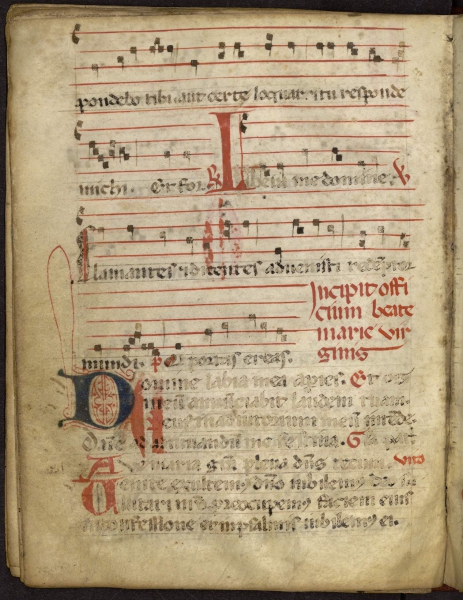 pondebo tibi aut certe loquar et tu responde
michi. Et for. R Libera me domine. V
Clamantes et dicentes advenisti redemptor
mundi. Pᵉ a portis eret.
Incipit offi
cium beate
marie vir
ginis
Domine labia mea apies. Et os
meū annūciabit laudem tuam.
Deus in adiutorium meū intēde.
Dn̄e ad adiuvandū me festina. Gl̄a patr
Ave maria gr̄a plena dn̄s tecum. Invito
Venite exultemꝰ dn̄o iubilemꝰ deo sa
lutari nr̄o p̄occupemꝰ faciem eius
in confessione et in psalmis iubilemꝰ ei.